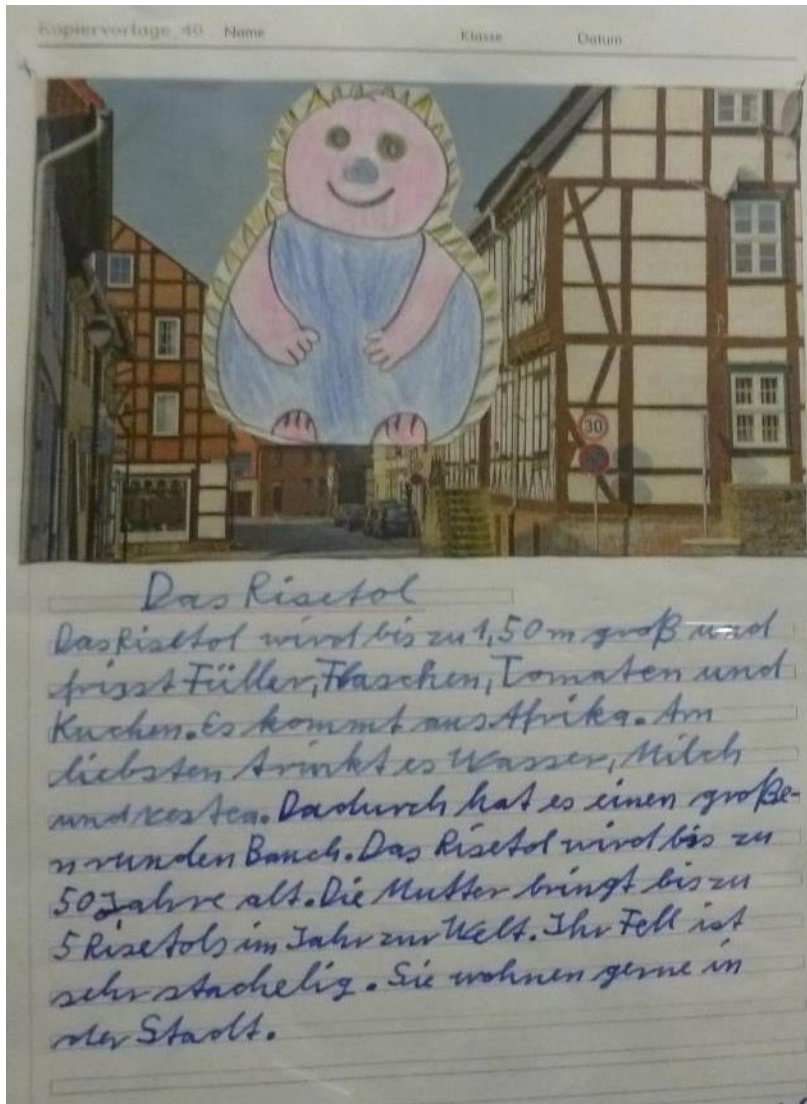 Kopiervorlage 40 Name Klasse Datum
30
Das Risetol
Das Risetol wird bis zu 1,50 m groß und
frisst Füller, Flaschen, Tomaten und
Kuchen. Es kommt aus Afrika. Am
liebsten trinkt es Wasser, Milch
und
Dadurch hat es einen große-
n runden Bauch. Das Risetol wird bis zu
50 Jahre alt. Die Mutter bringt bis zu
5 Risetols im Jahr zur Welt. Ihr Fell ist
sehr stachelig. Sie wohnen gerne in
der Stadt.